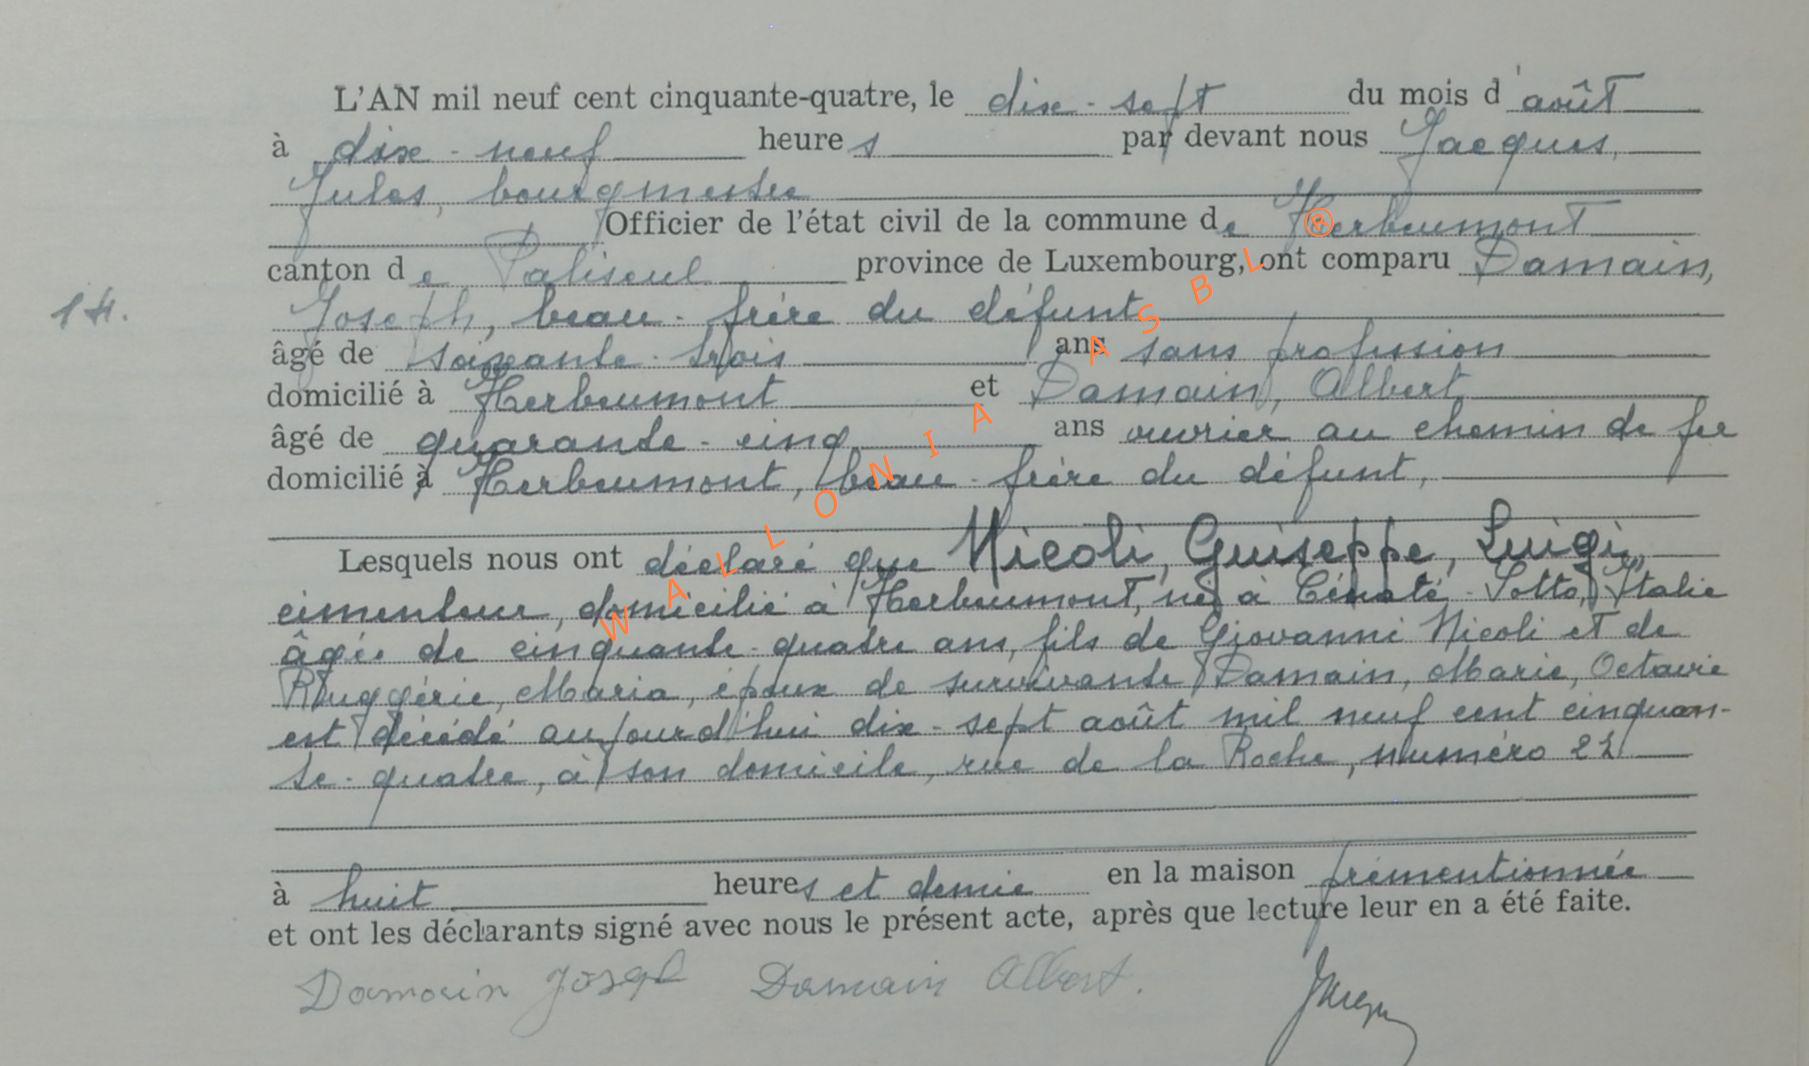 L'AN mil neuf cent cinquante-quatre, le dix-sept du mois d'août
à dix-neuf heures par devant nous Jacques,
Jules, bourgmestre
Officier de l'état civil de la commune de Herbeumont
canton de Paliseul province de Luxembourg, ont comparu Damain,
14. Joseph, beau-frère du défunt
âgé de soixante-trois ans sans profession
domicilié à Herbeumont et Damain, Albert
âgé de quarante-cinq ans ouvrier au chemin de fer
domicilié à Herbeumont, beau-frère du défunt,
Lesquels nous ont déclaré que Nicoli, Guiseppe, Luigi,
cimenteur, domicilié à Herbeumont, né à Cénaté-Sotto, Italie
âgée de cinquante-quatre ans, fils de Giovanni Nicoli et de
Ruggérie, Maria, époux de survivante Damain, Marie, Octavie
est décédé aujourd'hui dix-sept août mil neuf cent cinquan-
te-quatre, à son domicile, rue de la Roche, numéro 22
à huit heures et demie en la maison prémentionnée
et ont les déclarants signé avec nous le présent acte, après que lecture leur en a été faite.
Damain Joseph Damain Albert. Jacques
WALLONIA ASBL ®